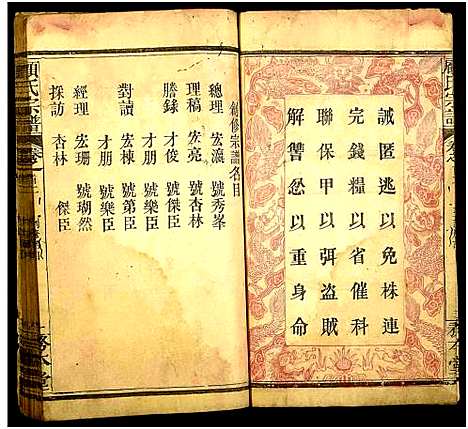 誡匿逃以免株連
完錢糧以省催科
聯保甲以弭盜賊
解讐忿以重身命
顧氏宗譜
修宗譜名目
總理 宏瀛 號秀峯
理稿 宏亮 號杏林
謄錄 才俊 號傑臣
才朋 號樂臣
對讀 宏棟 號第臣
才朋 號樂臣
經理 宏珊 號瑚然
採訪 杏林 傑臣
顧氏宗譜
務本堂